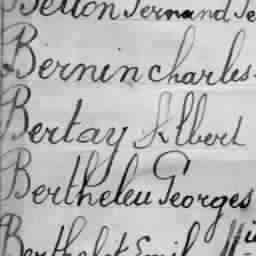 Betton Fernand Je
Bernin Charles
Bertay Albert
Bertheleu Georges
Berthelot Emil